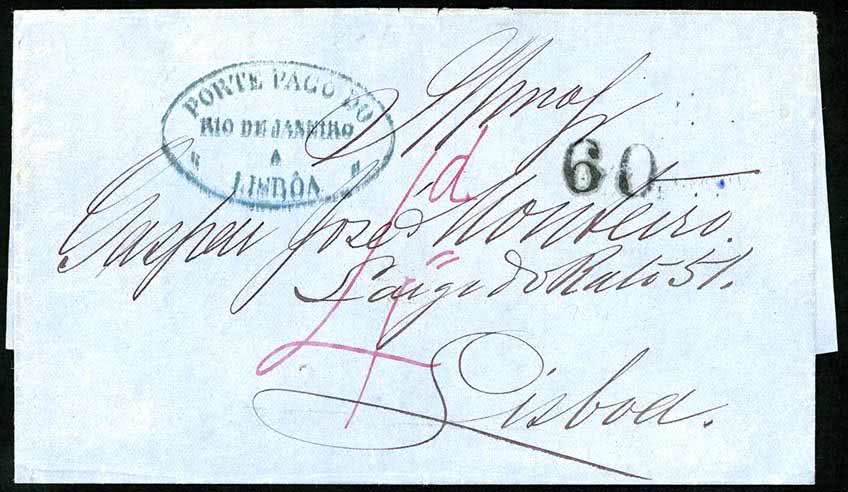 PORTE PAGO DO
RIO DE JANEIRO
A
LISBÔA
60
4d
Gaspar José Monteiro.
Largo do Rato 51.
Lisboa.